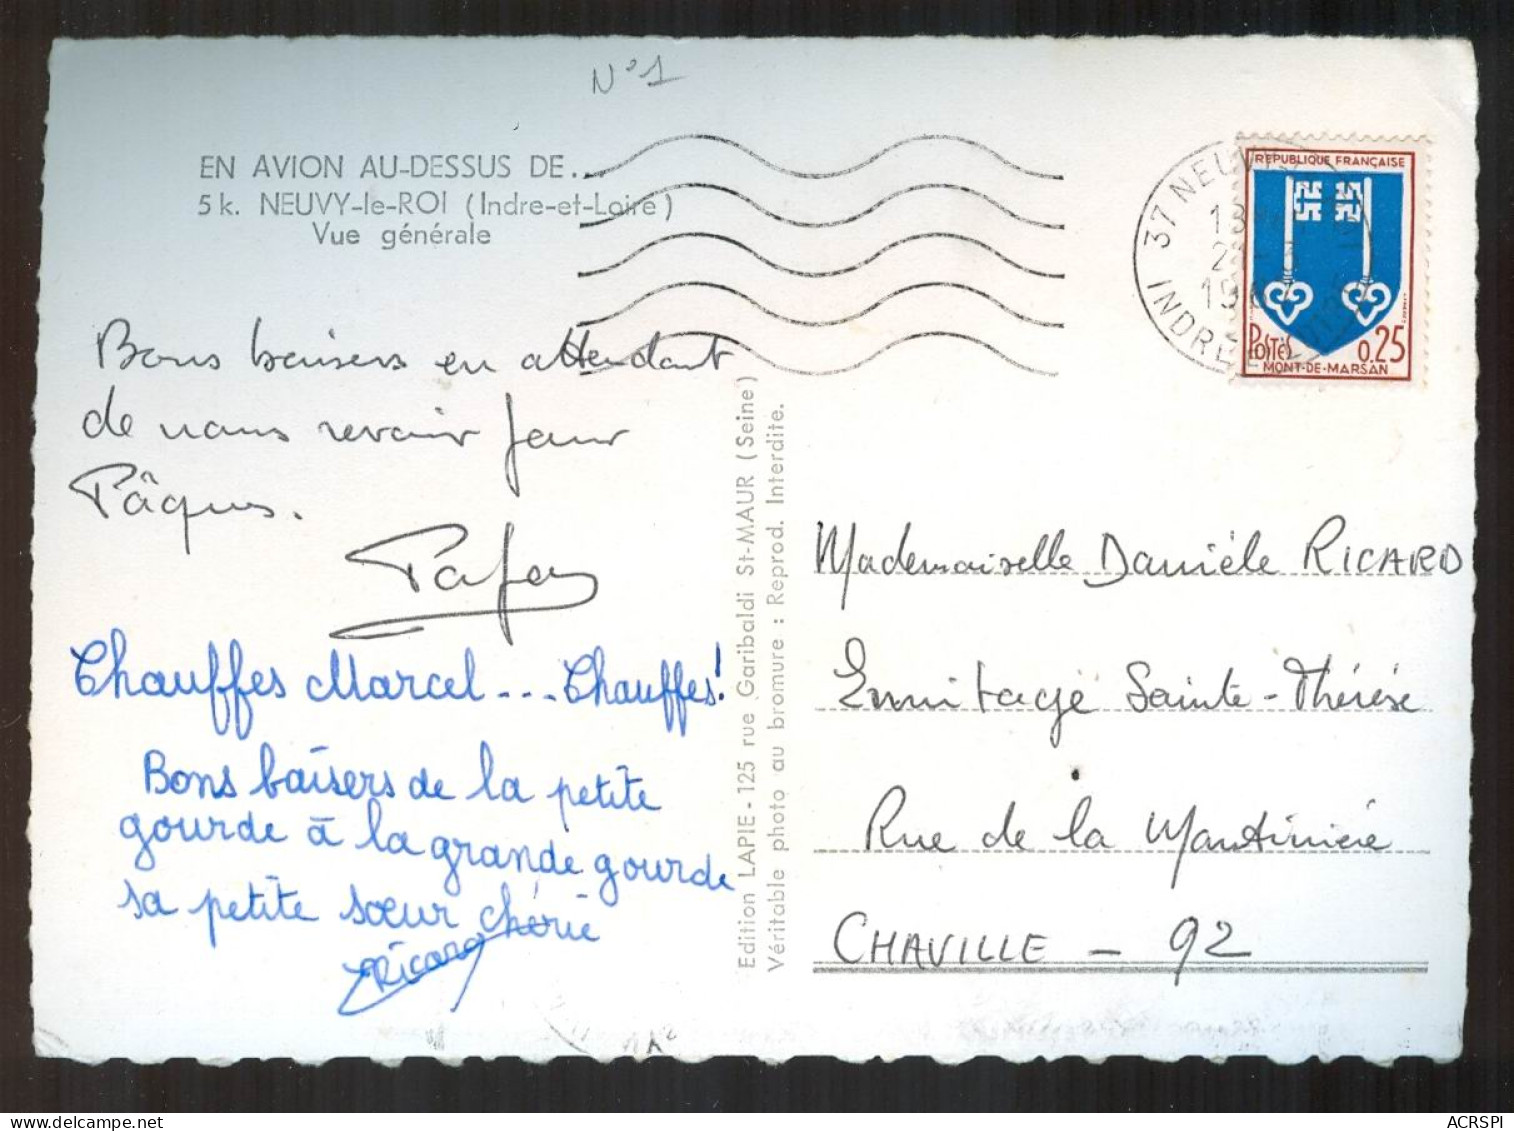 N°1
EN AVION AU-DESSUS DE...
5 k. NEUVY-le-ROI (Indre-et-Loire)
Vue générale
Bons baisers en attendant
de nous revoir pour
Pâques.
Chauffes Marcel --- Chauffes!
Bons baisers de la petite
gourde à la grande gourde
sa petite sœur chérie
Ricard
Edition LAPIE - 125 rue Garibaldi St-MAUR (Seine)
Véritable photo au bromure : Reprod. Interdite.
37 NEUVY
INDRE
REPUBLIQUE FRANÇAISE
POSTES 0,25
MONT-DE-MARSAN
Mademoiselle Danièle RICARD
Ermitage Sainte-Thérèse
Rue de la Martinière
CHAVILLE - 92
ACRSPI